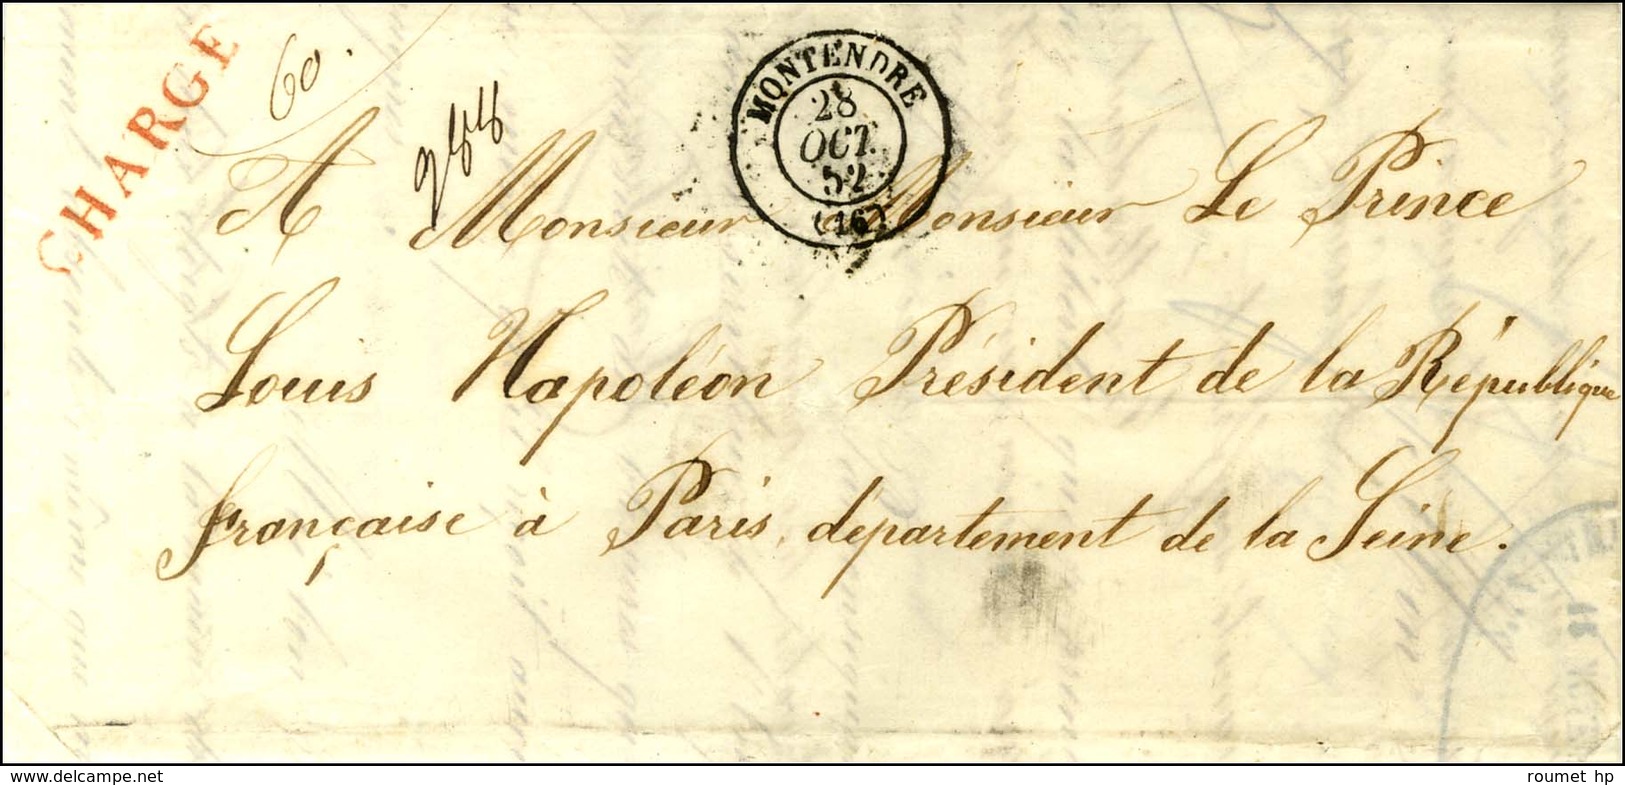 CHARGE
60.
MONTENDRE
28
OCT.
52
(16)
A Monsieur Monsieur Le Prince
Louis Napoléon Président de la République
française à Paris, département de la Seine.
www.delcampe.net
roumet hp